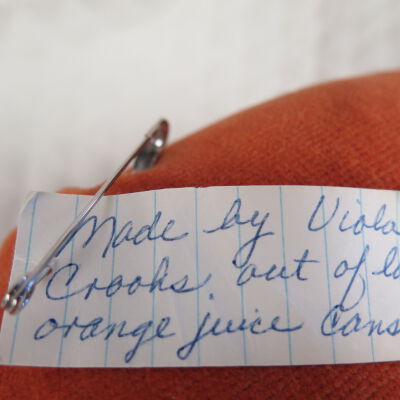 Made by Viola
Crooks, out of
orange juice cans